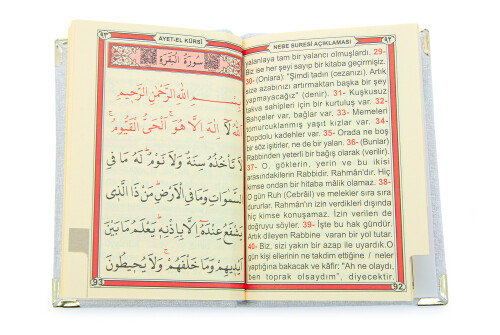 ٩٣ AYET-EL KÜRSİ
سُورَةُ الْبَقَرَةِ
بِسْمِ اللّٰهِ الرَّحْمٰنِ الرَّحِيمِ
اَللّٰهُ لَا اِلٰهَ اِلَّا هُوَ ۚ اَلْحَىُّ الْقَيُّومُ ۚ
لَا تَأْخُذُهُ سِنَةٌ وَلَا نَوْمٌ ۜ لَهُ مَا فِى
السَّمٰوَاتِ وَمَا فِى الْاَرْضِ ۜ مَنْ ذَا الَّذِى
يَشْفَعُ عِنْدَهُ اِلَّا بِاِذْنِهِ ۜ يَعْلَمُ مَا بَيْنَ
اَيْدِيهِمْ وَمَا خَلْفَهُمْ ۚ وَلَا يُحِيطُونَ
93
NEBE SURESİ AÇIKLAMASI ٩٢
yalanlaya tam bir yalancı olmuşlardı. 29-
Biz ise her şeyi sayıp bir kitaba geçirmişiz.
30- (Onlara): "Şimdi tadın (cezanızı). Artık
size azabınızı artırmaktan başka bir şey
yapmayacağız" (denir). 31- Kuşkusuz
takva sahipleri için bir kurtuluş var. 32-
Bahçeler var, bağlar var. 33- Memeleri
tomurcuklanmış yaşıt kızlar var. 34-
Dopdolu kadehler var. 35- Orada ne boş
bir söz işitirler, ne de bir yalan. 36- (Bunlar)
Rabbinden yeterli bir bağış olarak (verilir).
37- O, göklerin, yerin ve bu ikisi
arasındakilerin Rabbidir. Rahmân'dır. Hiç
kimse ondan bir hitaba mâlik olamaz. 38-
O gün Ruh (Cebrâil) ve melekler sıra sıra
dururlar. Rahmân'ın izin verdikleri dışında
hiç kimse konuşamaz. İzin verilen de
doğruyu söyler. 39- İşte bu hak gündür.
Artık dileyen Rabbine varan bir yol tutar.
40- Biz. sizi yakın bir azap ile uyardık.O
gün kişi ellerinin ne takdim ettiğine / neler
yaptığına bakacak ve kâfir; "Ah ne olaydı,
ben toprak olsaydım", diyecektir.
92